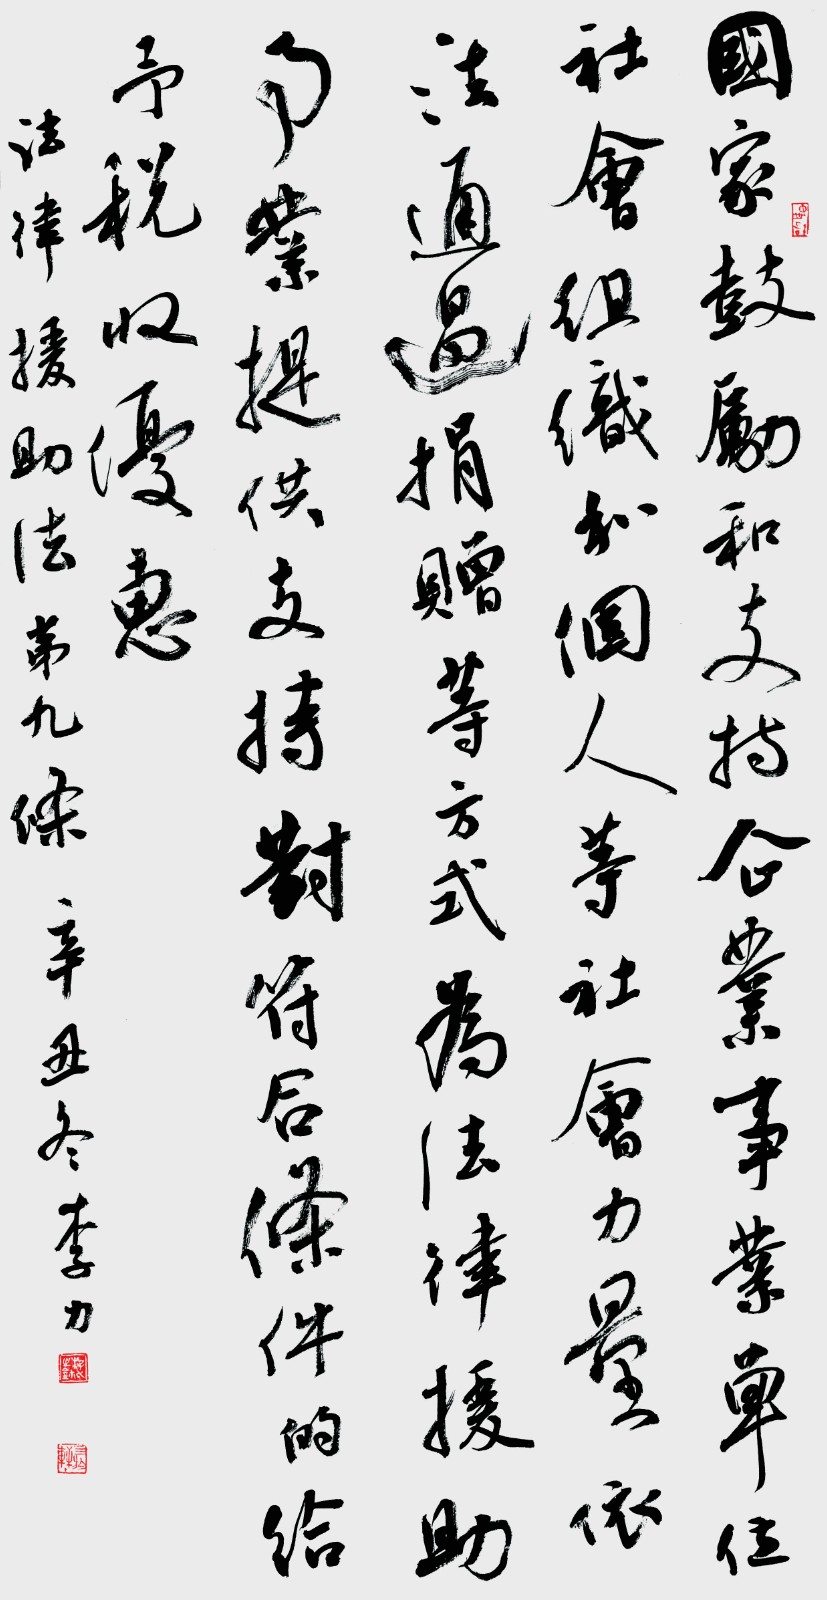 國家鼓勵和支持企業事業單位
社會組織和個人等社會力量依
法通過捐贈等方式爲法律援助
事業提供支持對符合條件的給
予税收優惠
法律援助法第九條 辛丑冬李力